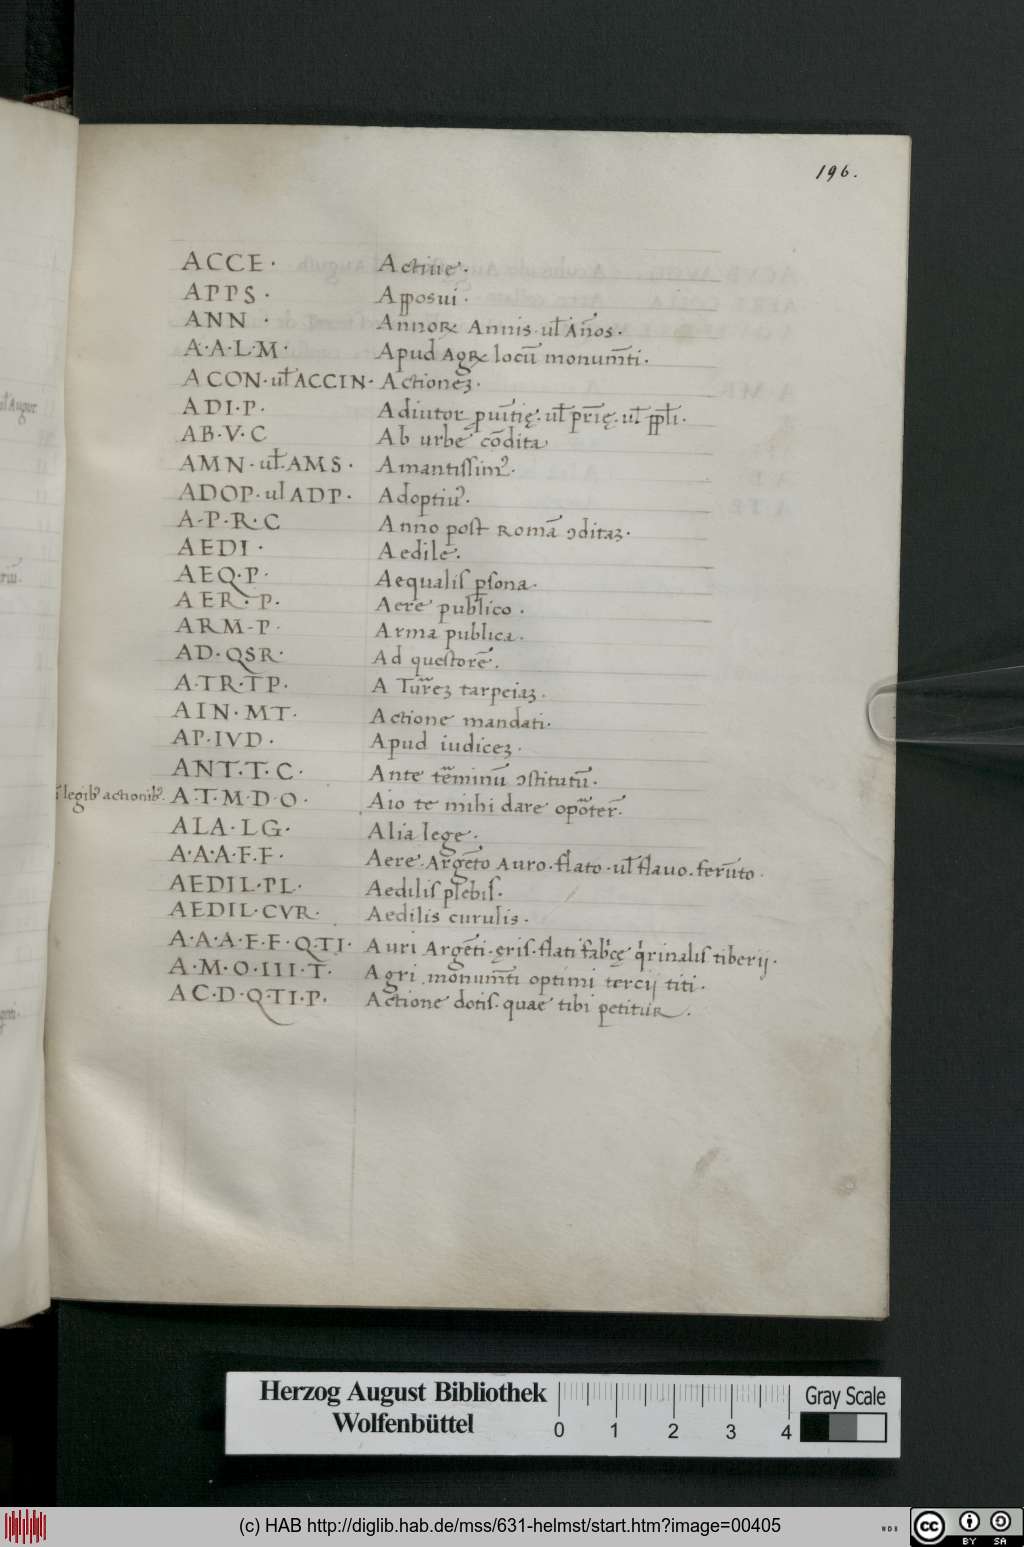 196.
ACCE · Actiue ·
APPS · Apposui ·
ANN · Annoꝝ Annis · ul̄ Ān̄os ·
A·A·L·M · Apud Agꝝ locū monum̄ti ·
ACON · ul̄ ACCIN · Actioneꝫ ·
ADI·P ·
AB·V·C Ab urbe cōdita
AMN · ul̄ AMS · Amantissim᷒ ·
ADOP · ul ADP · Adoptiu᷒ ·
A·P·R·C Anno post Romā ꝯditaꝫ ·
AEDI · Aedile ·
AEQ·P · Aequalis ꝑsona ·
AER·P · Aere publico ·
ARM·P · Arma publica ·
AD·QSR · Ad questorē ·
A·TR·TP · A Tur̄reꝫ tarpeiaꝫ ·
AIN·MT · Actione mandati ·
AP·IVD · Apud iudiceꝫ ·
ANT·T·C · Ante tēminū ꝯstitutū ·
legib᷒ actionib᷒ · A·T·M·D·O · Aio te mihi dare opōter̄ ·
ALA·LG · Alia lege ·
A·A·A·F·F · Aere · Argēto Auro · flato · ul̄ flauo · ferūto ·
AEDIL·PL · Aedilis plebis ·
AEDIL·CVR · Aedilis curulis ·
A·A·A·F·F·Q·TI · Auri Argēti · ęris · flati fab̍cę q̍rinalis tiberij ·
A·M·O·III·T · Agri monum̄ti optimi tercij titi ·
AC·D·Q·TI·P · Actione dotis · quae tibi petitur ·
Herzog August Bibliothek
Wolfenbüttel
0 1 2 3 4
Gray Scale
(c) HAB http://diglib.hab.de/mss/631-helmst/start.htm?image=00405
WDB
cc BY SA